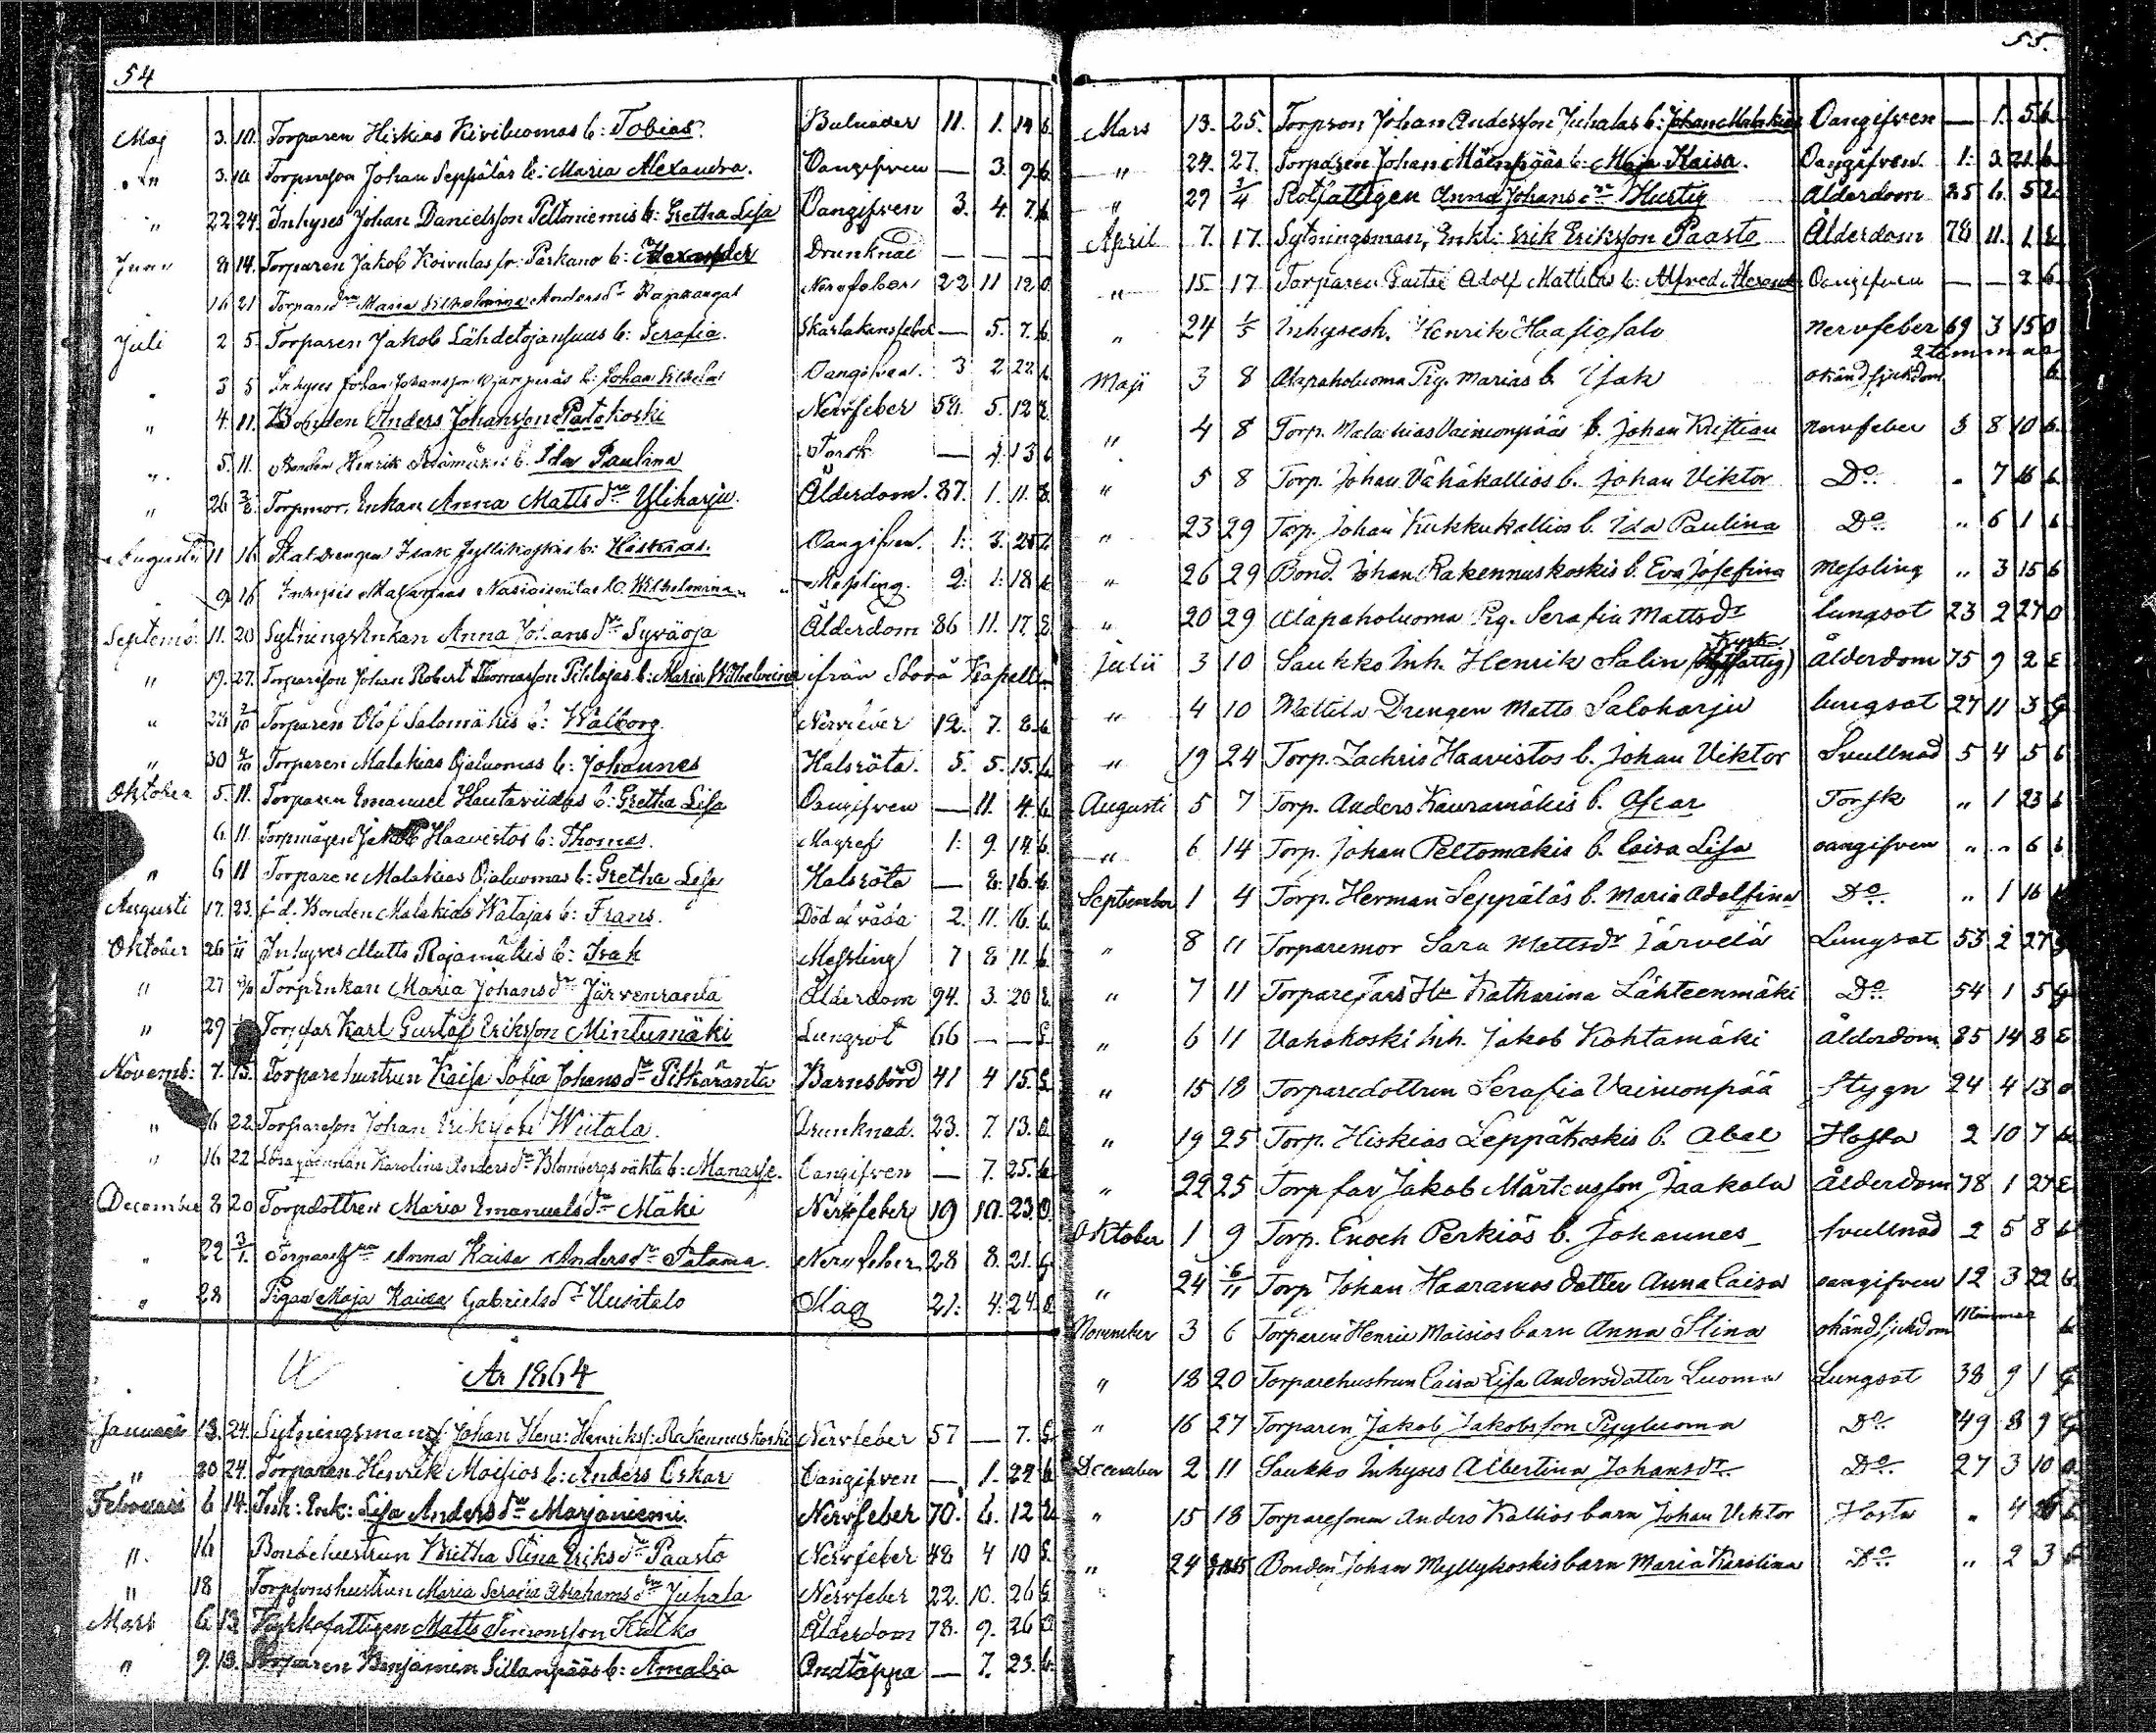 54
Maj 3. 10. Torparen Hiskias Kiviluomas b: Tobias. Bulnader 11. 1. 14 b.
" 3. 10 Torparson Johan Seppäläs b: Maria Alexandra. Oangifven — 3. 9 b.
" 22 24. Inhyses Johan Danielsson Peltoniemis b: Gretha Lisa Oangifven 3. 4. 7. b.
Juni 8 14. Torparen Jakob Koivulas fr. Parkano b: Alexander Drunknad — — —
16 21 Maria Wilhelmina Andersdr Nervfeber 22 11 12 O
Juli 2 5. Torparen Jakob Lähdetojansuus b: Serafia. Skarlakansfeber — 5. 7. b.
" 3 5 Inhyses Johan Johansson b: Johan Wilhelm Oangifven. 3 2 22 b.
" 4. 11. Bonden Anders Johansson Patokoski Nervfeber 5. 12
" 5. 11. Bonden Henrik b. Ida Paulina Torsk — 13 b
" 26 3/8 Torpmor. Enkan Anna Mattsdr Yliharju. Ålderdom. 87. 1. 11. E.
Augusti 11 16. Isak b: Hiskias. Oangifven. 1. 3. 25 b
" 9 16 Inhyses b. Wilhelmina Messling. 2. 1. 18 b
Septemb: 11. 20 Sytningsenkan Anna Johansdr Syväoja Ålderdom 86 11. 17. E.
" 19. 27. Torparson Johan Robert Thomasson Pihlajas b: Maria Wilhelmina ifrån Storå Kapell
" 28 2/10 Torparen Olof Salomäkis b: Walborg. Nervfeber 12. 7. 8. b.
" 30 4/10 Torparen Malakias Ojaluomas b: Johannes Halsröta. 5. 5. 15. b.
Oktober 5. 11. Torparen Emanuel Hautaviidas b: Gretha Lisa Oangifven — 11. 4. b
6. 11. Torpmågen Jakob Haavistos b: Thomas. Magref 1. 9. 14. b.
" 6 11 Torparen Malakias Ojaluomas b: Gretha Lisa Halsröta — 8. 16. b.
Augusti 17. 23. f.d. Bonden Malakias Watajas b: Frans. Död af våda 2. 11. 16. b.
Oktober 26 1/11 Inhyses Matts Rajamäkis b: Isak Messling 7 8 11. b.
" 27 Torp Enkan Maria Johansdr Järvenranta Ålderdom 94. 3. 20 E.
" 29 Torpfar Karl Gustaf Eriksson Mintumäki Lungsot 66 — — G.
Novemb: 7. 15. Torparehustrun Kaisa Sofia Johansdr Pitkäranta Barnsbörd 41 4 15. G.
" 16 22. Torparson Johan Eriksson Wiitala. Drunknad. 23. 7. 13. O.
" 16 22 Karolina Andersdr Blombergs oäkta b: Manasse. Oangifven — 7. 25. b.
December 8 20 Torpdottren Maria Emanuelsdr Mäki Nervfeber 19 10. 23. O.
" 22 3/1. Anna Kaisa Andersdr Nervfeber 28 8. 21. G
" 28 Pigan Maja Kaisa Gabrielsdr Uusitalo Slag 21. 4. 24. O.
År 1864
Januari 13. 24. Sytningsman Johan Henr: Henrikss: Rakennuskoski Nervfeber 57 — 7. G.
" 20 24. Torparen Henrik Moisios b: Anders Oskar Oangifven — 1. 22 b
Februari 6 14. Enk: Lisa Andersdr Marjaniemi. Nervfeber 70. 6. 12 E.
" 16 Bondehustrun Britha Stina Eriksdr Paasto Nervfeber 42 4 10 G.
" 18 Torpsonshustrun Maria Serafia Abrahamsdr Juhala Nervfeber 22. 10. 26 G.
Mars 6 13. Kyrkofattigen Matts Simonsson Kulko Ålderdom 78. 9. 26
" 9. 13. Torparen Benjamin Sillanpääs b: Amalia Andtäppa — 7. 23. b.
55.
Mars 13. 25. Torpson Johan Andersson Juhalas b: Johan Malakias Oangifven — 1. 5 b.
" 24. 27. Torparen Johan b: Maja Kaisa. Oangifven. 1. 3 21 b
" 27 3/4 Rotfattigen Anna Johansdr Hurtig Ålderdom 85 6. 5 E
April 7. 17. Sytningsman, Enkl: Erik Eriksson Paasto Ålderdom 78 11. 1. E
" 15. 17. Torparen Adolf Mattilas b: Alfred Alexander Oangifven — — 2 b
" 24 1/5 Inhysesh. Henrik Haapisalo Nervfeber 69 3 15 O
Maji 3 8 Alapaholuoma Pig. Marias b. Isak okänd sjukdom 2 timmar b
" 4 8 Torp. Malachias Vainionpääs b. Johan Kristian nervfeber 3 8 10 b.
" 5 8 Torp. Johan Vähäkallios b. Johan Viktor Do " 7 16 b.
" 23 29 Torp. Johan Kukkukallios b. Ida Paulina Do " 6 1 b
" 26 29 Bond. Johan Rakennuskoskis b. Eva Josefina Messling " 3 15 b
" 20 29 Alapaholuoma Pig. Serafia Mattsdr lungsot 23 2 27 O
Julii 3 10 Saukko Inh. Henrik Salin (Kyrkfattig) ålderdom 75 9 2 E
" 4 10 Mattila Drengen Matts Saloharju lungsot 27 11 3 G
" 19 24 Torp. Zachris Haavistos b. Johan Viktor Svullnad 5 4 5 b
Augusti 5 7 Torp. Anders Kauramäkis b. Oscar Torsk " 1 23 b
" 6 14 Torp. Johan Peltomäkis b. Caisa Lisa oangifven " " 6 b
September 1 4 Torp. Herman Seppäläs b. Maria Adolfina Do " 1 16
" 8 11 Torparemor Sara Mattsdr Järvelä Lungsot 53 2 27 G
" 7 11 Torparefars Hu Katharina Lähteenmäki Do 54 1 5 G
" 6 11 Vahokoski Inh. Jakob Kohtamäki Ålderdom. 85 14 8 E
" 15 18 Torparedottren Serafia Vainionpää Stygn 24 4 13 O
" 19 25 Torp. Hiskias Leppäkoskis b. Abel Hosta 2 10 7 b
" 22 25 Torpfar Jakob Mårtensson Jaakola Ålderdom 78 1 27 E
Oktober 1 9 Torp. Enoch Perkiös b. Johannes Svullnad 2 5 8 b
" 24 6/11 Torp Johan Haaramos dotter Anna Caisa oangifven 12 3 22 b.
November 3 6 Torparen Henric Moisios barn Anna Stina okänd sjukdom b
" 18 20 Torparehustrun Caisa Lisa Andersdotter Luoma Lungsot 38 9 1 G
" 16 27 Torparen Jakob Jakobsson Pyyluoma Do 49 8 9 G
December 2 11 Saukko Inhyses Albertina Johansdr Do 27 3 10 O
" 15 18 Torparesonen Anders Kallios barn Johan Viktor Hosta " 4 b
" 24 Bonden Johan Myllykoskis barn Maria Karolina Do " 2 3 b